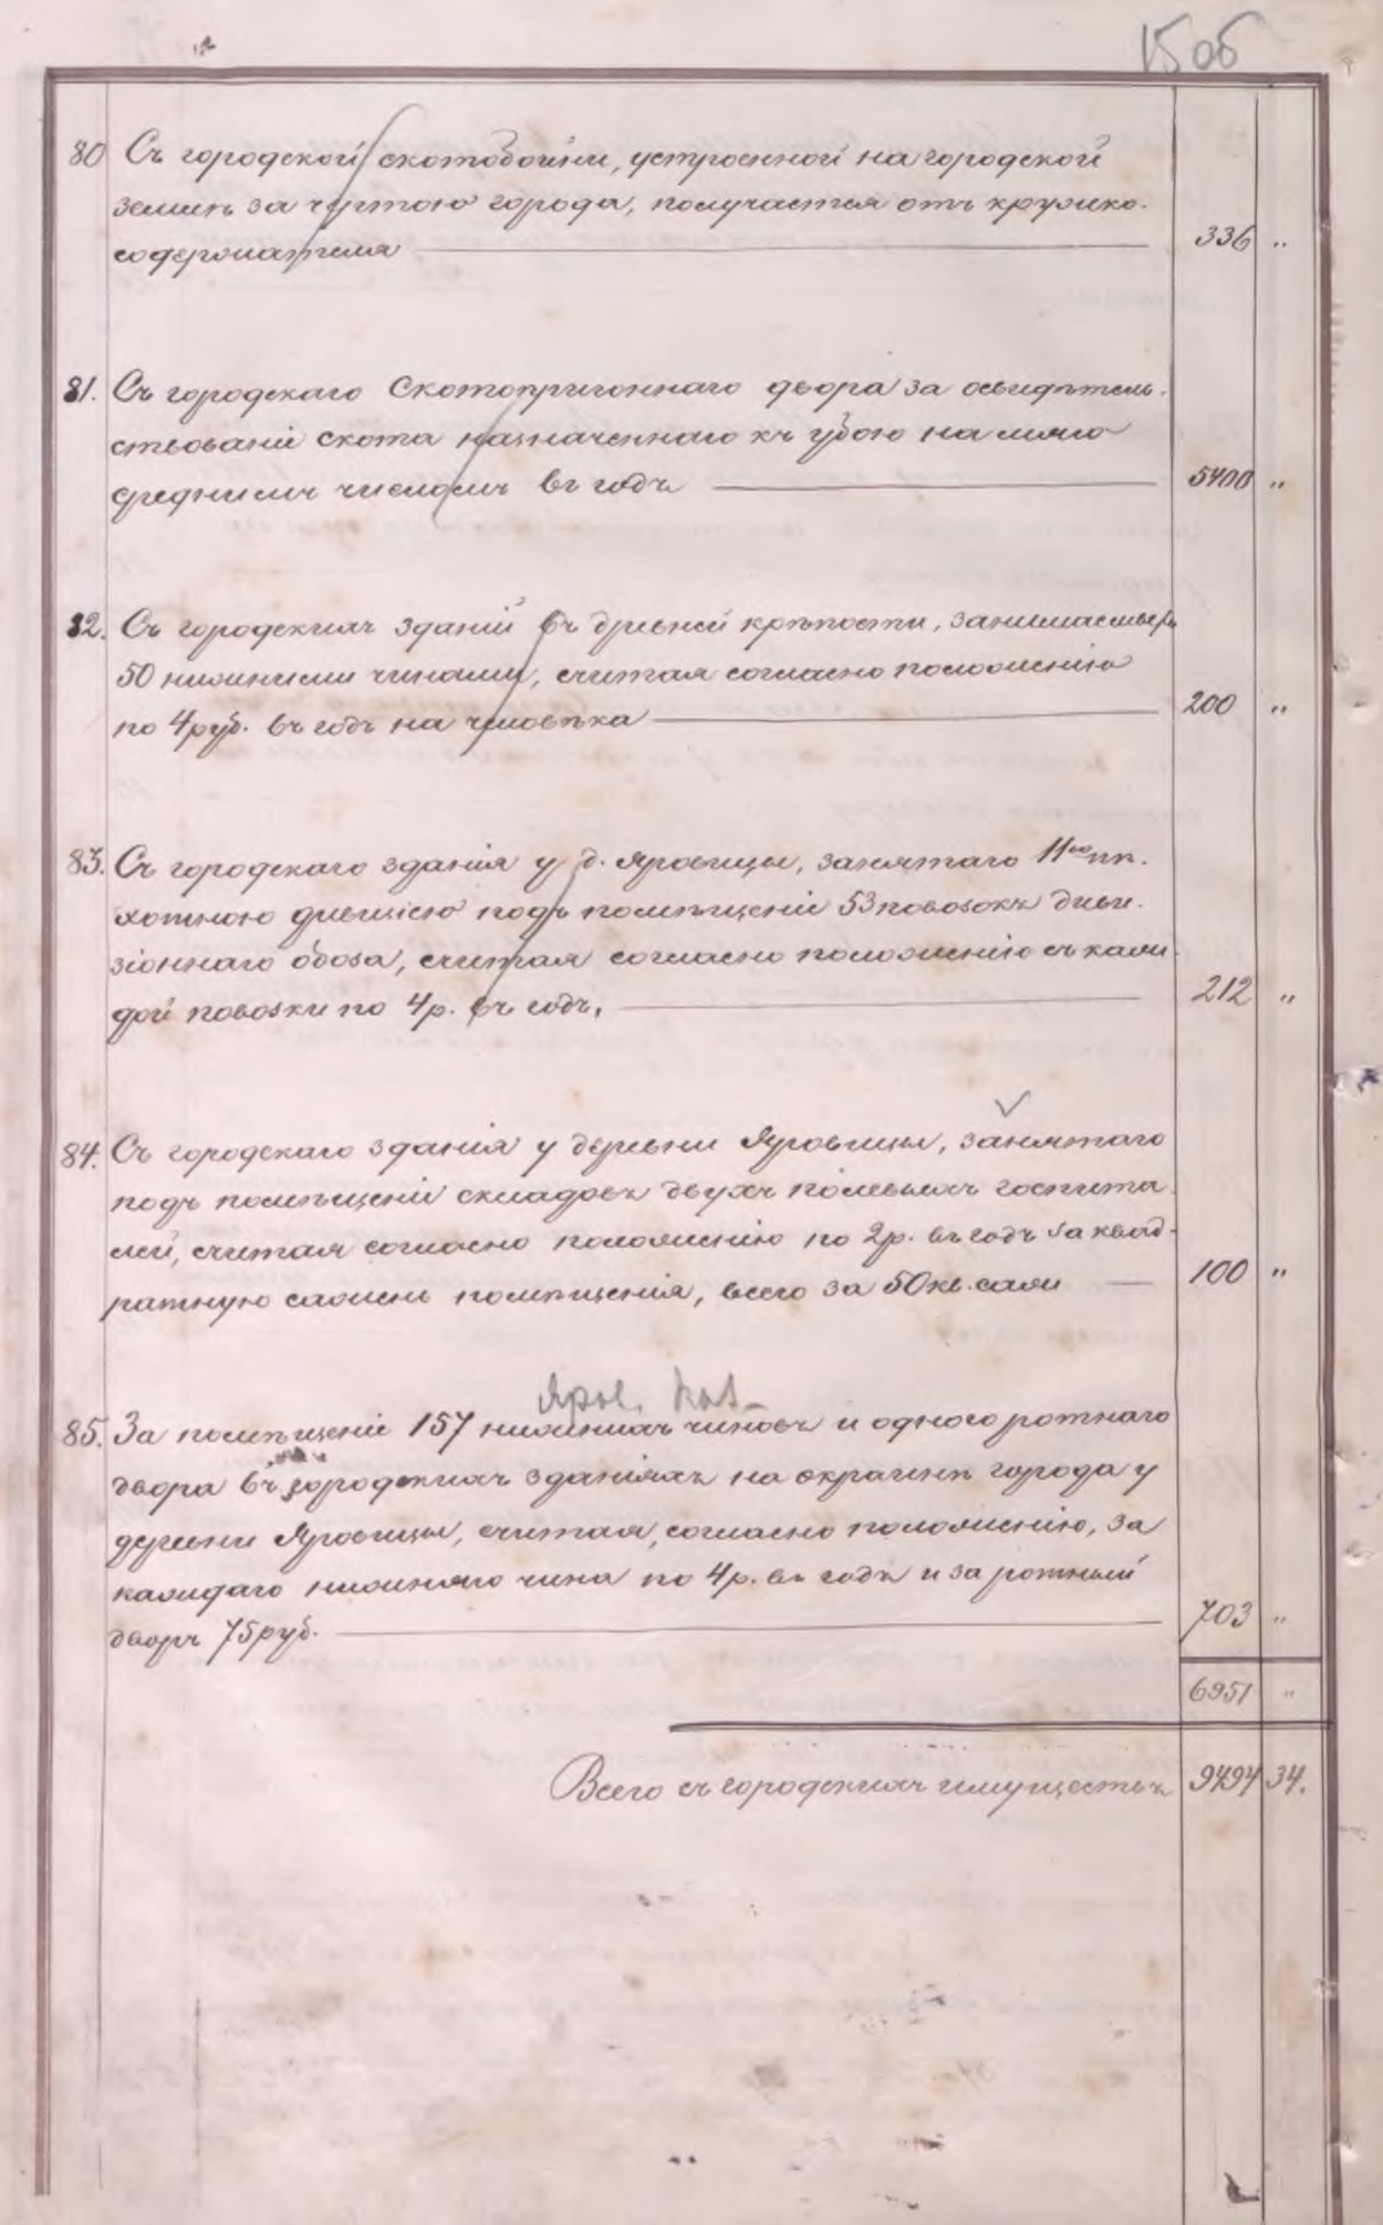 15 об
80 Съ городской скотобойни, устроенной на городской
землѣ за чертою города, получается отъ кружко-
содержателя 336 "
81. Съ городскаго Скотопригоннаго двора за освидѣтель-
ствованіе скота назначеннаго къ убою на мясо
среднимъ числомъ въ годъ 5400 "
82. Съ городскихъ зданій въ древней крѣпости, занимаемыхъ
50 нижними чинами, считая согласно положенію
по 4 руб. въ годъ на человѣка 200 "
83. Съ городскаго зданія у д. Яровицы, занятаго 11ою пѣ-
хотною дивизіею подъ помѣщеніе 53 повозокъ диви-
зіоннаго обоза, считая согласно положенію съ каж-
дой повозки по 4 р. въ годъ. 212 "
84. Съ городскаго зданія у деревни Яровицы, занятаго
подъ помѣщеніе складовъ двухъ полевыхъ госпита-
лей, считая согласно положенію по 2 р. въ годъ за квад-
ратную сажень помѣщенія, всего за 50 кв. саж 100 "
Яров. Каз.
85. За помѣщеніе 157 нижнихъ чиновъ и одного ротнаго
двора въ городскихъ зданіяхъ на окраинѣ города у
деревни Яровицы, считая, согласно положенію, за
каждаго нижняго чина по 4 р. въ годъ и за ротный
дворъ 75 руб. 703 "
6951 "
Всего съ городскихъ имуществъ 9494 34.